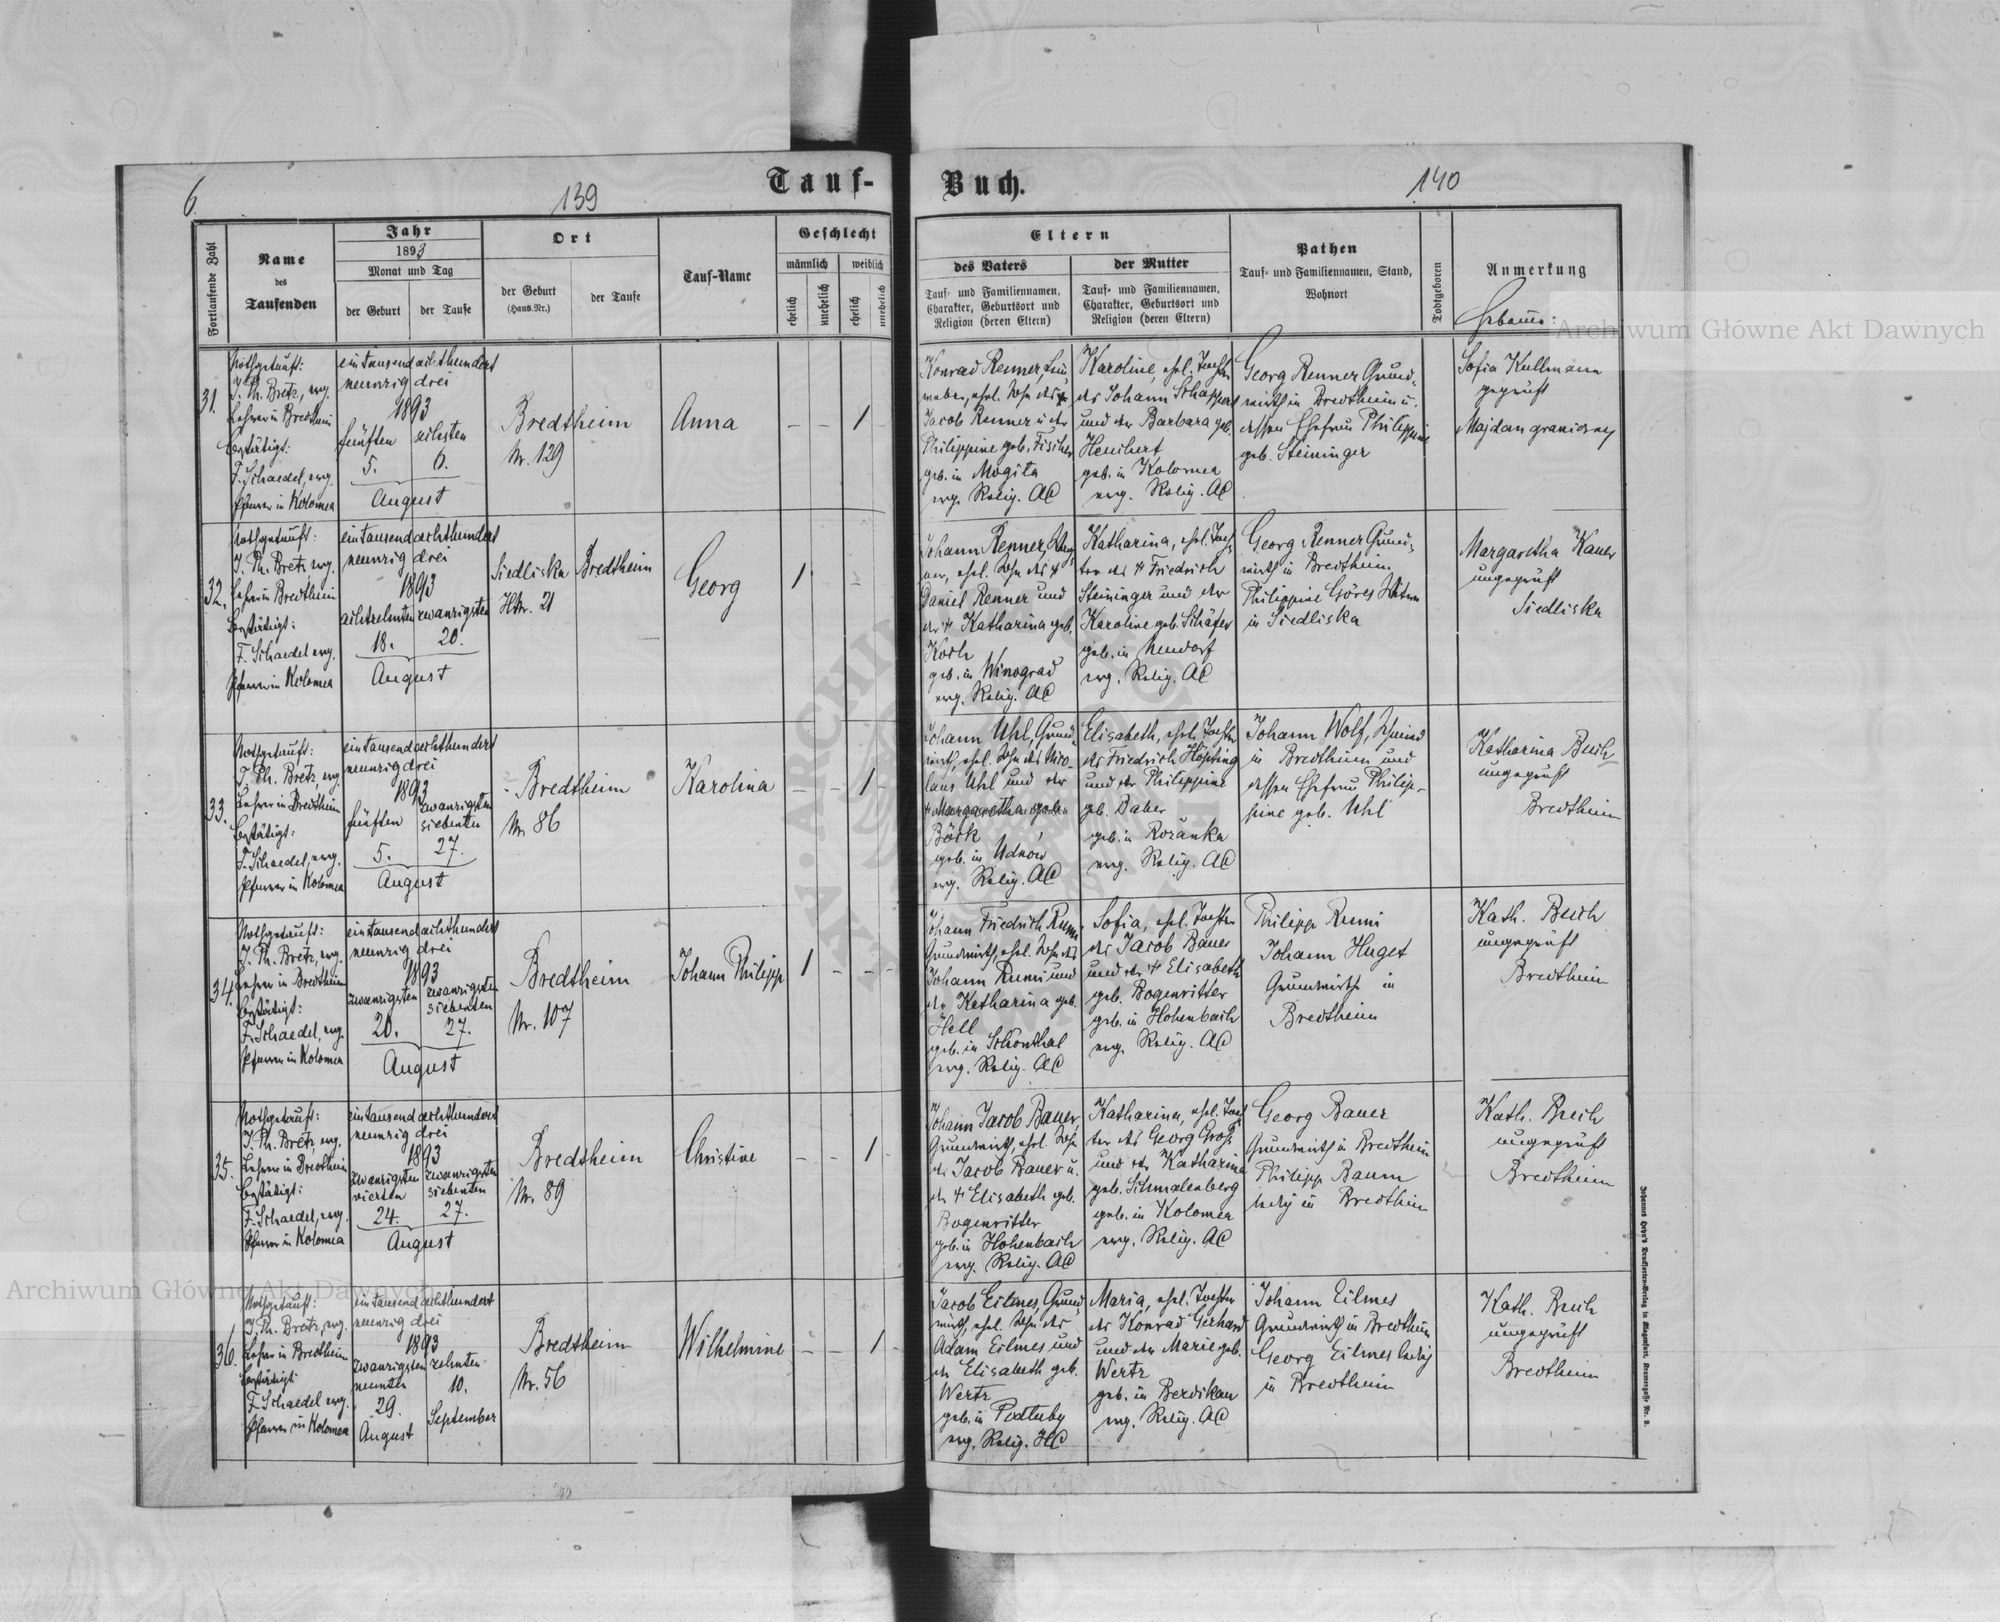 6.
139
Tauf-
Fortlaufende Zahl
Name
des
Taufenden
Jahr
1893
Monat und Tag
der Geburt
der Taufe
Ort
der Geburt
(Haus-Nr.)
der Taufe
Tauf-Name
Geschlecht
männlich
weiblich
ehelich
unehelich
ehelich
unehelich
31.
Nothgetauft:
J. Ph. Bretz, evg.
Lehrer in Bredtheim
bestätigt:
F. Schaedel, evg.
Pfarrer in Kolomea
eintausendachthundert
neunzig drei
1893
fünften sechsten
5. 6.
August
Bredtheim
Nr. 129
Anna
– – 1
32.
Nothgetauft:
J. Ph. Bretz evg.
Lehrer in Bredtheim
bestätigt:
F. Schaedel evg.
Pfarrer in Kolomea
eintausendachthundert
neunzig drei
1893
achtzehnten zwanzigsten
18. 20.
August
Siedliska
HNr. 21
Bredtheim
Georg
1 –
33.
Nothgetauft:
J. Ph. Bretz, evg.
Lehrer in Bredtheim
bestätigt:
F. Schaedel, evg.
Pfarrer in Kolomea
eintausendachthundert
neunzig drei
1893
fünften
zwanzigsten
siebenten
5. 27.
August
Bredtheim
Nr. 86
Karolina
– – 1 –
34.
Nothgetauft:
J. Ph. Bretz, evg.
Lehrer in Bredtheim
bestätigt:
F. Schaedel, evg.
Pfarrer in Kolomea
eintausendachthundert
neunzig drei
1893
zwanzigsten
zwanzigsten
siebenten
20. 27.
August
Bredtheim
Nr. 107
Johann Philipp
1 – – –
35.
Nothgetauft:
J. Ph. Bretz, evg.
Lehrer in Bredtheim
bestätigt:
F. Schaedel, evg.
Pfarrer in Kolomea
eintausendachthundert
neunzig drei
1893
zwanzigsten zwanzigsten
vierten siebenten
24. 27.
August
Bredtheim
Nr. 89
Christine
– – 1 –
36.
Nothgetauft:
J. Ph. Bretz, evg.
Lehrer in Bredtheim
bestätigt
F. Schaedel evg.
Pfarrer in Kolomea
eintausendachthundert
neunzig drei
1893
zwanzigsten zehnten
neunten 10.
29.
August September
Bredtheim
Nr. 56
Wilhelmine
– – 1 –
Buch.
140
Eltern
des Vaters
Tauf- und Familiennamen,
Charakter, Geburtsort und
Religion (deren Eltern)
der Mutter
Tauf- und Familiennamen,
Charakter, Geburtsort und
Religion (deren Eltern)
Pathen
Tauf- und Familiennamen, Stand,
Wohnort
Todtgeboren
Anmerkung
Hebamme:
Konrad Renner, Lein-
weber, ehel. Sohn des
Jacob Renner u. der
Philippine geb. Fischer
geb. in Mogiła
evg. Relig. AC
Karoline, ehel. Tochter
des Johann Schappert
und der Barbara geb.
geb. in Kolomea
evg. Relig. AC
Georg Renner Grund-
wirth in Bredtheim u.
dessen Ehefrau Philippine
geb. Steininger
Sofia Kullmann
geprüft
Majdan graniczny
Johann Renner,
ehel. Sohn des †
Daniel Renner und
der † Katharina geb.
Koch
geb. in Winograd
evg. Relig. AC
Katharina, ehel. Toch-
ter des † Friedrich
Steininger und der
Karoline geb. Schäfer
geb. in Neudorf
evg. Relig. AC
Georg Renner Grund-
wirth in Bredtheim
Philippine Göres
in Siedliska
Margaretha Kauer
ungeprüft
Siedliska
Johann Uhl, Grund-
wirt, ehel. Sohn des Nico-
laus Uhl und der
† Margaretha geb.
Böck
geb. in Udnów
evg. Relig. AC
Elisabeth, ehel. Tochter
des Friedrich Höpfing
und der Philippine
geb. Daber
geb. in Rozanka
evg. Relig. AC
Johann Wolf, Schmied
in Bredtheim und
dessen Ehefrau Philip-
pine geb. Uhl
Katharina Buch
ungeprüft
Bredtheim
Johann Friedrich Rumi
Grundwirth, ehel. Sohn des
Johann Rumi und
der Katharina geb.
Hell
geb. in Schönthal
evg. Relig. AC
Sofia, ehel. Tochter
des Jacob Bauer
und der † Elisabeth
geb. Bogenritter
geb. in Hohenbach
evg. Relig. AC
Philipp Rumi
Johann Huget
Grundwirth in
Bredtheim
Kath. Buch
ungeprüft
Bredtheim
Johann Jacob Bauer,
Grundwirt, ehel. Sohn
des Jacob Bauer u.
der † Elisabeth geb.
Bogenritter
geb. in Hohenbach
evg. Relig. AC
Katharina, ehel. Toch-
ter des Georg Groß
und der Katharina
geb. Schmalenberg
geb. in Kolomea
evg. Relig. AC
Georg Bauer
Grundwirth in Bredtheim
Philipp Baum
ledig in Bredtheim
Kath. Buch
ungeprüft
Bredtheim
Jacob Eilmes, Grund-
wirth, ehel. Sohn des
Adam Eilmes und
der Elisabeth geb.
Wertz
geb. in Podłuby
evg. Relig. HC
Maria, ehel. Tochter
des Konrad Gerhard
und der Marie geb.
Wertz
geb. in Berdikau
evg. Relig. AC
Johann Eilmes
Grundwirth in Bredtheim
Georg Eilmes ledig
in Bredtheim
Kath. Buch
ungeprüft
Bredtheim
Archiwum Główne Akt Dawnych
Archiwum Główne Akt Dawnych